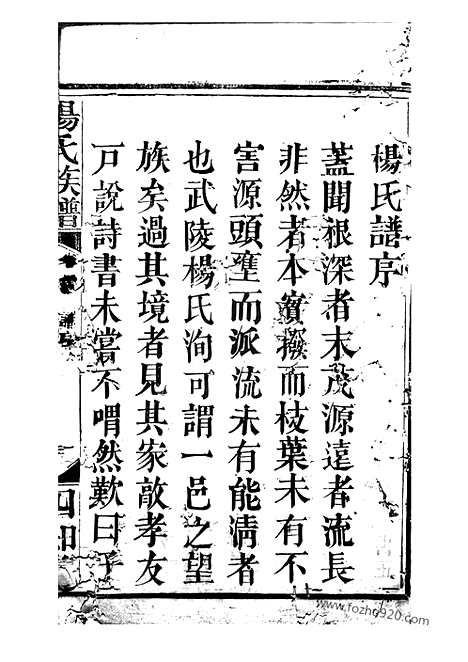 楊氏譜序
蓋聞根深者末茂源遠者流長
非然者本實撥而枝葉未有不
害源頭壅而派流未有能淸者
也武陵楊氏洵可謂一邑之望
族矣過其境者見其家敵孝友
戸說詩書未嘗不喟然歎曰予
楊氏族譜
www.fozhq920.com